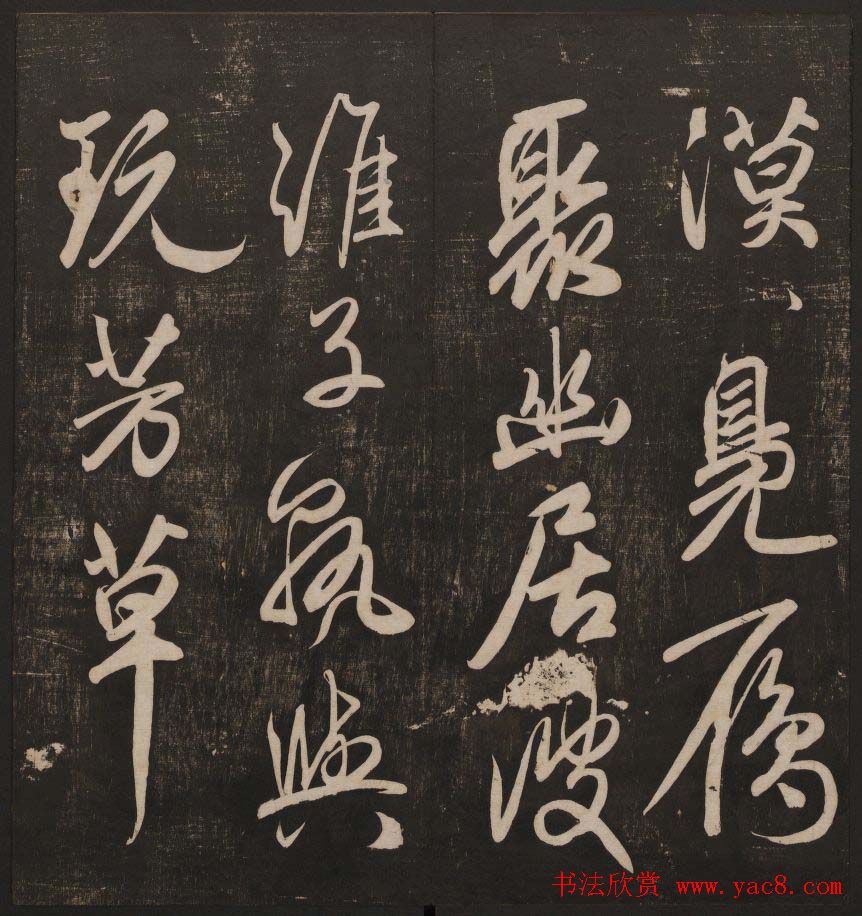 漠、鳧鴈
聚幽居
誰子孰與
玩芳草
书法欣赏 www.yac8.com